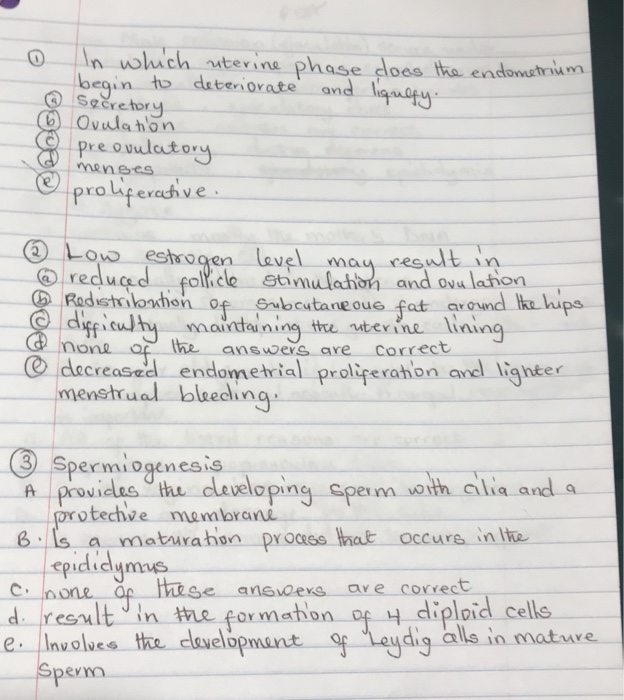 ① In which uterine phase does the endometrium
begin to deteriorate and liquefy.
ⓐ Secretory
ⓑ Ovulation
ⓒ preovulatory
ⓓ menses
ⓔ proliferative.
② Low estrogen level may result in
ⓐ reduced follicle stimulation and ovulation
ⓑ Redistribution of subcutaneous fat around the hips
ⓒ difficulty maintaining the uterine lining
ⓓ none of the answers are correct
ⓔ decreased endometrial proliferation and lighter
menstrual bleeding.
③ Spermiogenesis
A provides the developing sperm with cilia and a
protective membrane
B. Is a maturation process that occurs in the
epididymus
C. none of these answers are correct
d. result in the formation of 4 diploid cells
e. Involves the development of Leydig cells in mature
Sperm